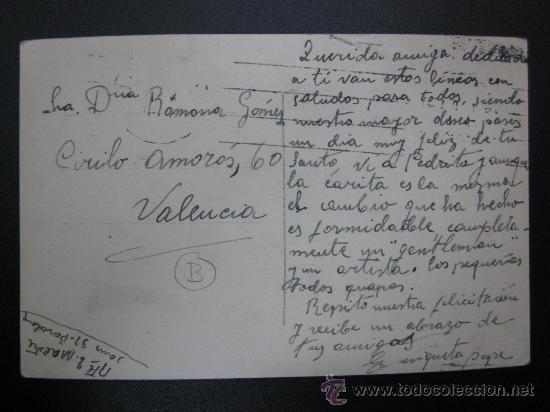 Sra. Dña Ramona Gómez
Cirilo Amorós, 60
Valencia
B
Querida amiga: dedicadas
a ti van estas líneas con
saludos para todos, siendo
nuestro mayor deseo pases
un día muy feliz de tu
Santo. Vi a Pedrito y aunque
la carita es la misma
el cambio que ha hecho
es formidable completa-
mente un "gentleman"
y un artista. Los pequeños
todos guapos.
Repito nuestra felicitación
y recibe un abrazo de
tus amigas
Enriqueta Pepe
todocoleccion.net